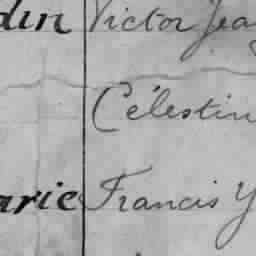 din Victor Jea
Célestin
arie Francis Y